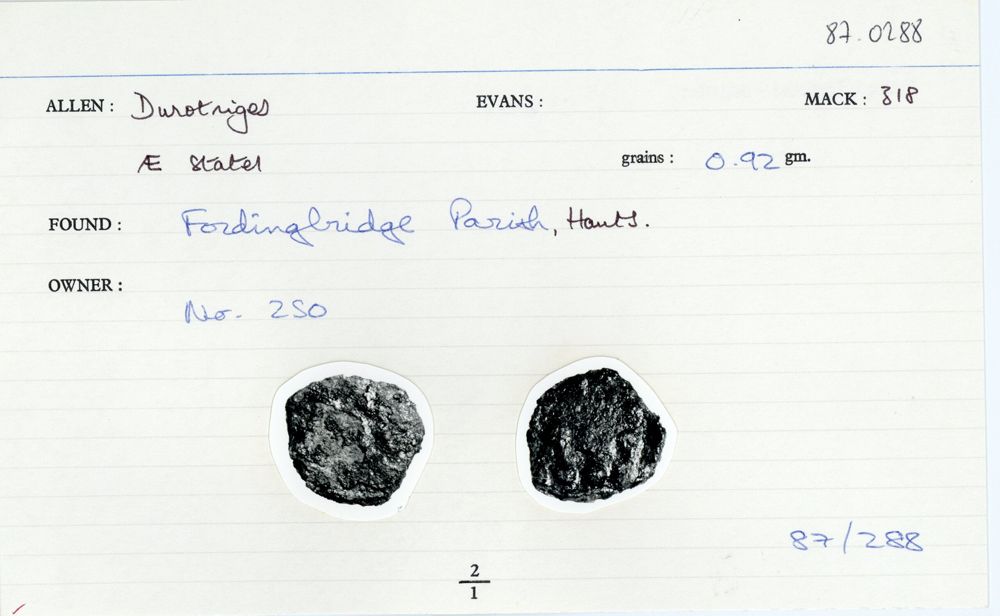 87.0288
ALLEN: Durotriges EVANS: MACK: 318
Æ Stater grains: 0.92 gm.
FOUND: Fordingbridge Parish, Hants.
OWNER:
No. 250
87/288
2
1